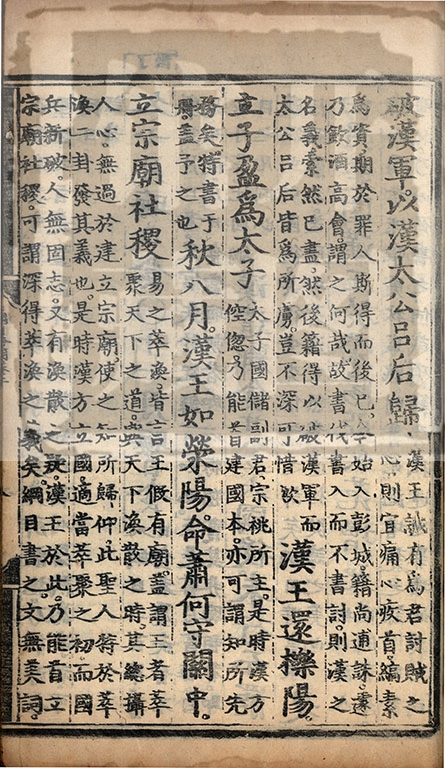 破漢軍。以漢太公呂后歸。漢王誠有爲君討賊之
心則宜痛心疾首縞素
爲資期於罪人斯得而後已今始入彭城。籍尚逋誅。遽
乃飲酒高會。謂之何哉。故書伐書入而不書討。則漢之
名義索然已盡。然後籍得以破漢軍而
太公呂后皆爲所虜。豈不深可惜歟
漢王還櫟陽。
立子盈爲太子
太子國儲副君。宗祧所主。是時漢方
倥傯。乃能首建國本。亦可謂知所先
務矣。特書于
冊。蓋予之也
秋八月。漢王如滎陽。命蕭何守關中。
立宗廟社稷
易之萃渙。皆言王假有廟。蓋謂王者萃
聚天下之道。與天下渙散之時。其總攝
人心。無過於建立宗廟。使之知所歸仰。此聖人特於萃
渙二卦發其義也。是時漢方立國。適當萃聚之初。而國
兵新破。人無固志。又有渙散之疑。漢王於此。乃能首立
宗廟社稷。可謂深得萃渙之義矣。綱目書之。文無美詞。